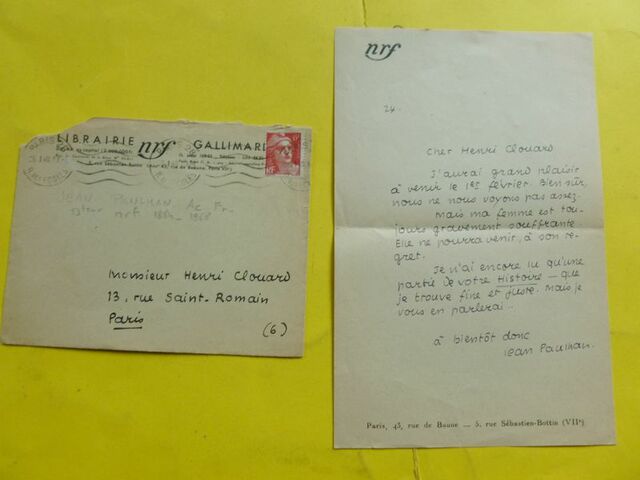 LIBRAIRIE nrf GALLIMARD
PARIS
RF
JEAN PAULHAN Ac Fr.
nrf 1884-1968
Monsieur Henri Clouard
13, rue Saint-Romain
Paris
(6)
nrf
24.
Cher Henri Clouard
J'aurai grand plaisir
à venir le 1er février. Bien sûr,
nous ne nous voyons pas assez.
Mais ma femme est tou-
jours gravement souffrante
Elle ne pourra venir, à son re-
gret.
Je n'ai encore lu qu'une
partie de votre Histoire — que
je trouve fine et juste. Mais je
vous en parlerai..
à bientôt donc
Jean Paulhan.
Paris, 43, rue de Beaune — 5, rue Sébastien-Bottin (VIIe)